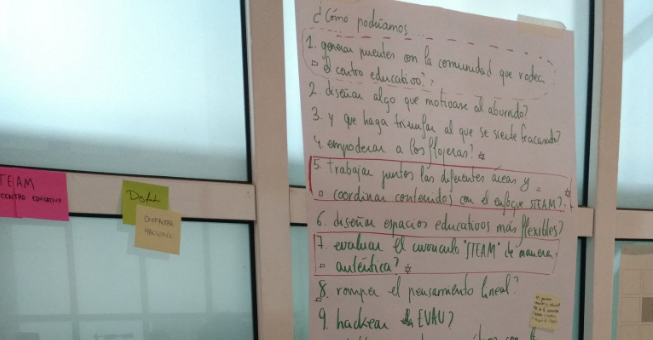 ¿Cómo podríamos...
1. generar puentes con la comunidad que rodea
el centro educativo?
2 diseñar algo que motivase al aburrido?
3. y que haga triunfar al que se siente fracasado?
4. empoderar a los
5. trabajar juntos las diferentes áreas y
coordinar contenidos con el enfoque STEAM?
6. diseñar espacios educativos más flexibles?
7 evaluar el currículo "STEAM" de manera
auténtica?
8. romper el pensamiento lineal?
9. hackear la EVAU?
STEAM
CENTRO EDUCATIVO